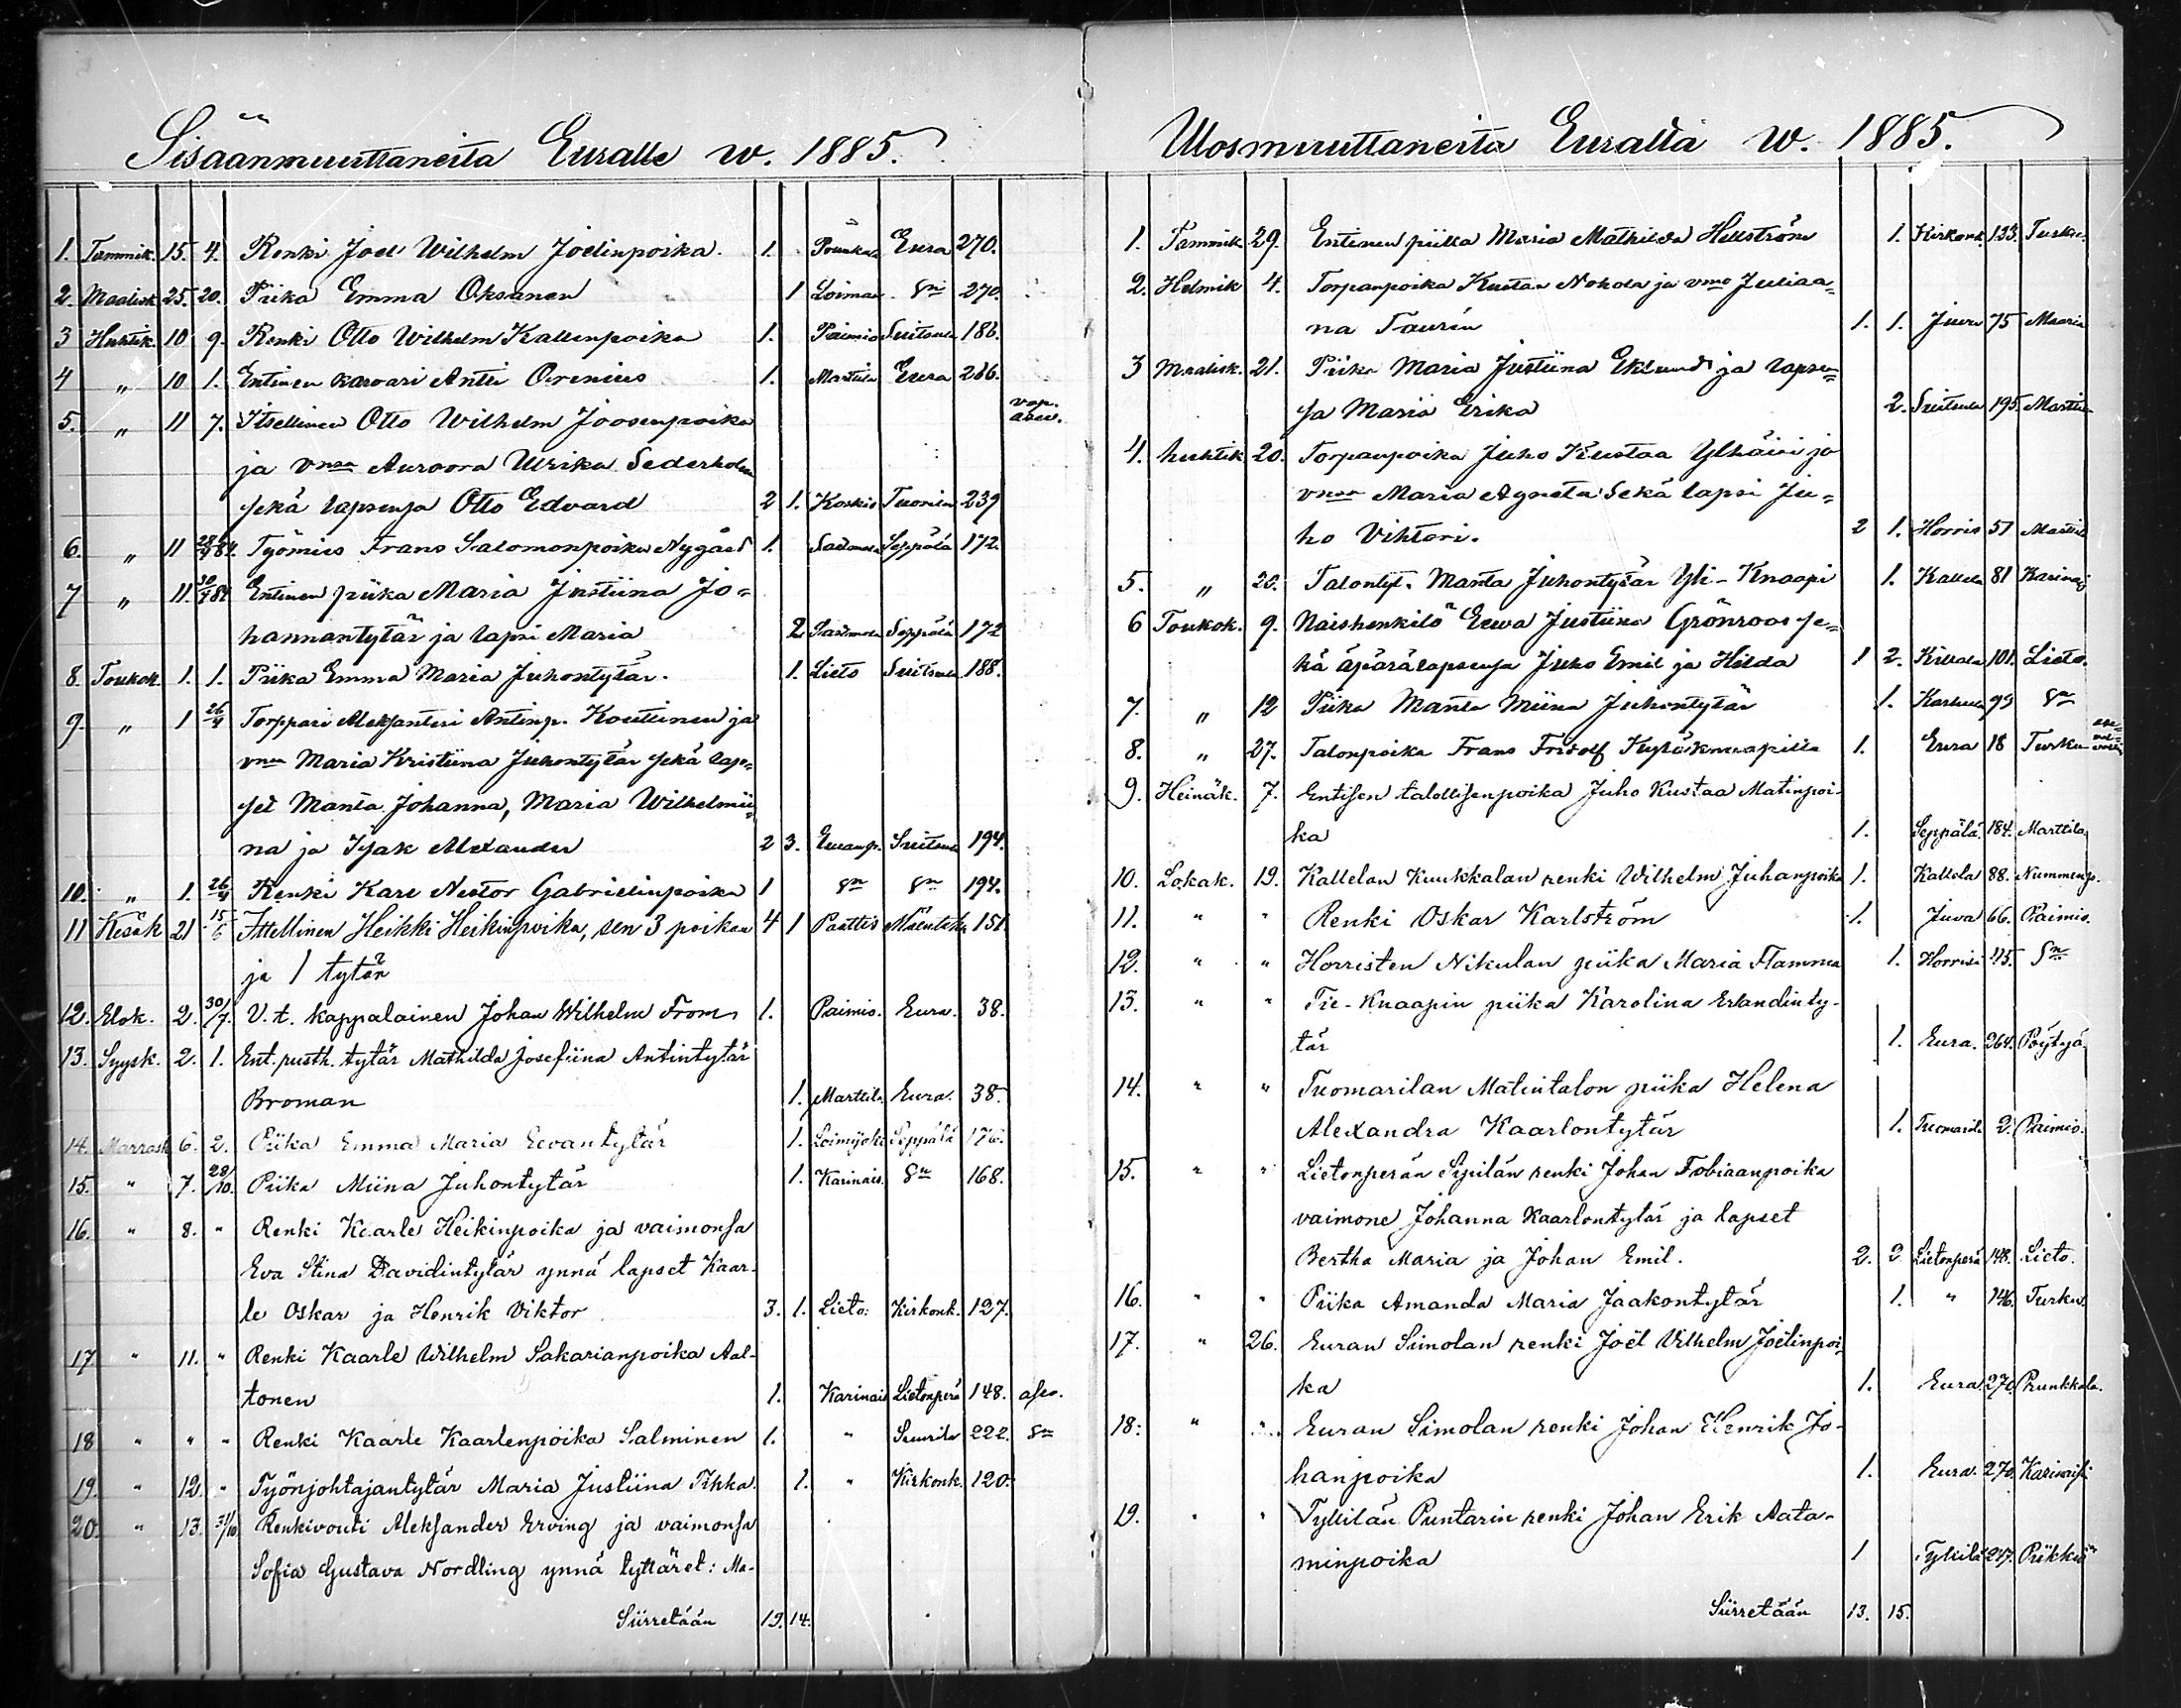 Sisäänmuuttaneita Euralle w. 1885.
1. Tammik. 15. 4. Renki Joel Wilhelm Joelinpoika. 1. Prunkala Eura 270.
2. Maalisk. 25. 20. Piika Emma Oksanen 1 Loimaa Sn 270.
3 Huhtik. 10 9. Renki Otto Wilhelm Kallenpoika 1. Paimio Suitsula 186.
4 „ 10 1. Entinen karvari Antti Orenius 1. Marttila Eura 286.
5. „ 11 7. Itsellinen Otto Wilhelm Joosenpoika vap. asev.
ja vmsa Auroora Ulrika Sederholm
sekä lapsensa Otto Edvard 2 1. Koskis Tuorila 239
6. „ 11 28/9 84. Työmies Frans Salomonpoika Nygård 1. Seppälä 172.
7 „ 11. 84 Entinen piika Maria Justiina Jo=
hannantytär ja lapsi Maria 2 Seppälä 172
8. Toukok. 1. 1. Piika Emma Maria Juhontytär. 1. Lieto Suitsula 188.
9. „ 1 26/4 Torppari Aleksanteri Antinp. Kouttinen ja
vmo Maria Kristiina Juhontytär sekä lap=
set Manta Johanna, Maria Wilhelmii=
na ja Isak Alexander 2 3. Suitsula 194.
10. „ 1. 26/4 Renki Karl Nestor Gabrielinpoika 1 Sn Sn 194.
11 Kesäk 21 15/6 Ittellinen Heikki Heikinpoika, sen 3 poikaa 4 1 Paattis Mäentaka 151.
ja 1 tytär
12. Elok. 2. 30/7. V. t. kappalainen Johan Wilhelm From 1. Paimio. Eura. 38.
13. Syysk. 2. 1. Ent. rusth. tytär Mathilda Josefiina Antintytär
Broman 1. Marttila Eura. 38.
14. Marrask 6. 2. Piika Emma Maria Eevantytär 1. Loimijoki Seppälä 176.
15. " 7. 28/10. Piika Miina Juhontytär 1. Karinais. Sn 168.
16. " 8. " Renki Kaarle Heikinpoika ja vaimonsa
Eva Stina Davidintytär ynnä lapset Kaar-
le Oskar ja Henrik Viktor 3. 1. Lieto. Kirkonk. 127.
17 " 11. " Renki Kaarle Wilhelm Sakarianpoika Aal-
tonen 1. Karinais Lietonperä 148. asev.
18 " " " Renki Kaarle Kaarlenpoika Salminen 1. " Suurila 222. Sn
19. " 12. " Työnjohtajantytär Maria Justiina Pihka. 1. " Kirkonk. 120.
20. " 13. 31/10 Renkivouti Aleksander Erving ja vaimonsa
Sofia Gustava Nordling ynnä tyttäret: Ma-
Siirretään 19. 14.
Ulosmuuttaneita Euralta w. 1885.
1. Tammik 29. Entinen piika Maria Mathilda Hellström 1. Kirkonk. 133. Turku.
2. Helmik 4. Torpanpoika Kustaa Nokola ja vmo Juliaa=
na Taurén 1. 1. Juva 75 Maaria
3 Maalisk. 21. Piika Maria Justiina Eklund ja lapsen=
sa Maria Erika 2. Suitsula 195. Marttila
4. huhtik 20. Torpanpoika Juho Kustaa Ylhäisi ja
vmsa Maria Agneta Sekä lapsi Ju=
ho Vihtori. 2 1. Horris 51 Marttila
5. „ 20. Talontyt. Manta Juhontytär Yli-Knaapi 1. Kallela 81 Karinaj
6 Toukok. 9. Naishenkilö Eewa Justiina Grönroos se=
kä äpärälapsensa Juho Emil ja Hilda 1 2. Killala 101. Lieto.
7. „ 12 Piika Manta Miina Juhontytär 1. Karhula 99 Sn
8. „ 27. Talonpoika Frans Fridolf 1. Eura 18 Turku
9. Heinäk. 7. Entisen talollisenpoika Juho Kustaa Matinpoi-
ka 1. Seppälä 184. Marttila
10. Lokak. 19. Kallelan Kuukkalan renki Wilhelm Juhanpoika 1. Kallela 88. Nummenp.
11. " " Renki Oskar Karlström 1. Juva 66. Paimio.
12. " " Horristen Nikulan piika Maria Flamma 1. Horrisi 45. Sn
13. " " Tie-Knaapin piika Karolina Erlandinty-
tär 1. Eura. 264. Pöytyä.
14. " " Tuomarilan Matintalon piika Helena
Alexandra Kaarlontytär 1. Tuomaril. 2. Paimio.
15. " " Lietonperän Sipilän renki Johan Tobiaanpoika
vaimone Johanna Kaarlontytär ja lapset
Bertha Maria ja Johan Emil. 2. 2 Lietonperä 148. Lieto.
16. " " Piika Amanda Maria Jaakontytär 1. " 146. Turku.
17. " 26. Euran Simolan renki Joël Vilhelm Joëlinpoi-
ka 1. Eura. 270. Prunkkala.
18. " " Euran Simolan renki Johan Henrik Jo-
hanpoika 1. Eura. 270. Karinaisi
19. " " Tyllilän Puntarin renki Johan Erik Aata-
minpoika 1 Tyllilä 247. Piikkiö
Siirretään 13. 15.